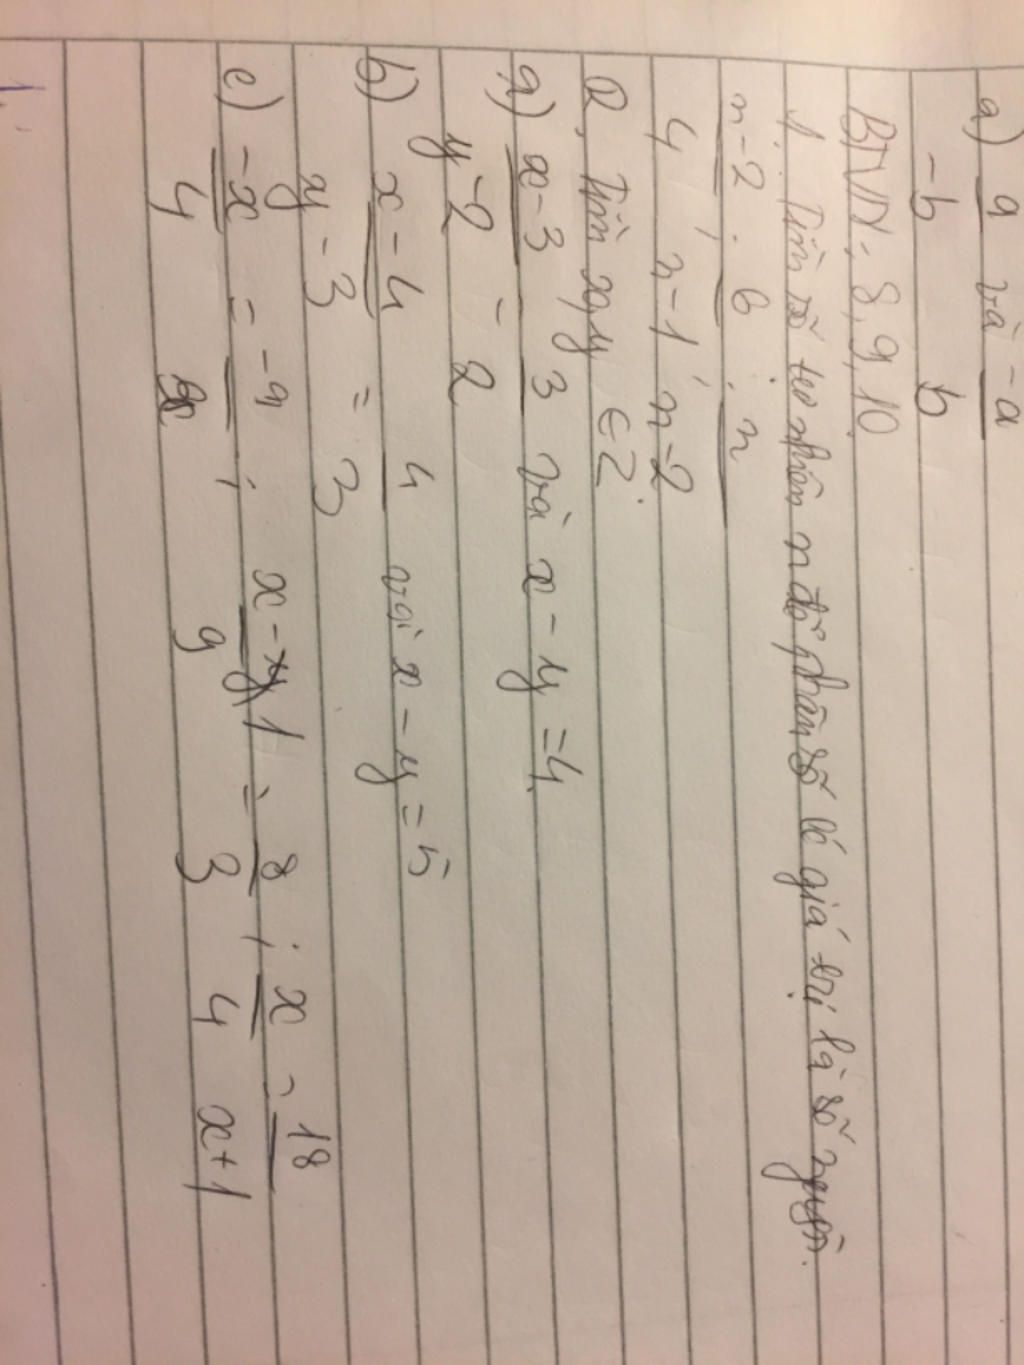 a) a/-b và -a/b
BTVN: 8, 9, 10.
1. Tìm số tự nhiên n để phân số có giá trị là số nguyên.
n-2/4 ; 6/n-1 ; n/n-2
2. Tìm x, y ∈ Z.
a) x-3/y-2 = 3/2 và x - y = 4.
b) x-4/y-3 = 4/3 với x - y = 5
c) -x/4 = -9/x ; x-1/9 = 8/3 ; x/4 = 18/x+1
1.